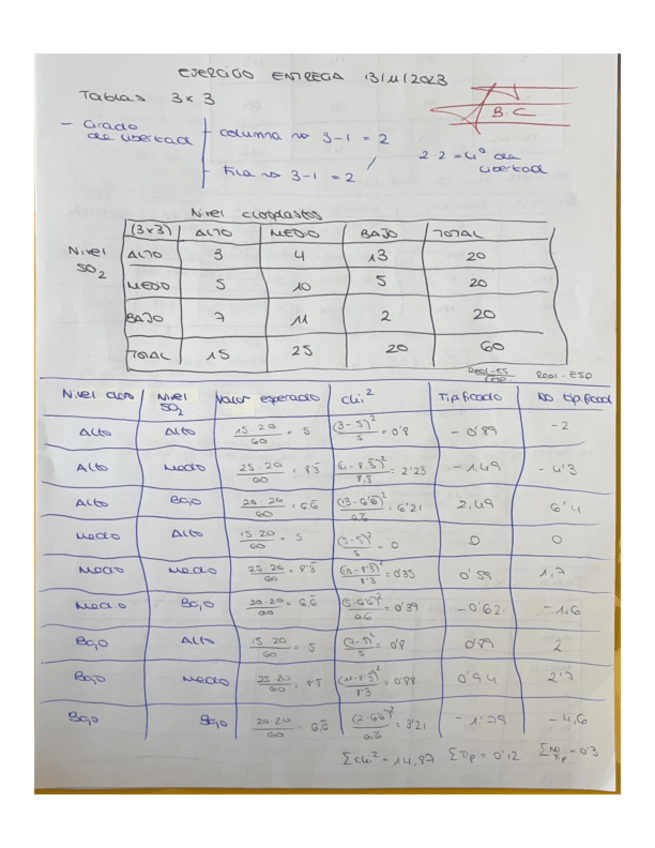 EJERCICIO ENTREGA 13/11/2023
Tablas 3x3
B.C
- Grado de libertad
columna no 3-1 = 2
Fila no 3-1 = 2
2·2 = 4º de libertad
Nivel cloroplastos
Nivel SO2
(3x3) ALTO MEDIO BAJO TOTAL
ALTO 3 4 13 20
MEDIO 5 10 5 20
BAJO 7 11 2 20
TOTAL 15 25 20 60
Real-ES Real-ESP
Nivel SO2 Valor esperado chi² Tipificado No tipificad
Alto Alto 15·20/60 = 5 (3-5)²/5 = 0'8 -0'89 -2
Alto Medio 25·20/60 = 8'3 (4-8'3)²/8'3 = 2'23 -1,49 -4'3
Alto Bajo 20·20/60 = 6'6 (13-6'6)²/6'6 = 6'21 2,49 6'4
Medio Alto 15·20/60 = 5 (5-5)²/5 = 0 0 0
Medio Medio 25·20/60 = 8'3 (10-8'3)²/8'3 = 0'35 0'59 1,7
Medio Bajo 20·20/60 = 6,6 (5-6'6)²/6,6 = 0'39 -0'62 -1,6
Bajo Alto 15·20/60 = 5 (7-5)²/5 = 0'8 0'89 2
Bajo Medio 25·20/60 = 8'3 (11-8'3)²/8'3 = 0'88 0'94 2'7
Bajo Bajo 20·20/60 = 6'6 (2-6'6)²/6,6 = 3'21 -1'79 -4,6
Σchi² = 14,87 ΣTip = 0'12 ΣNo Tip = -0'3